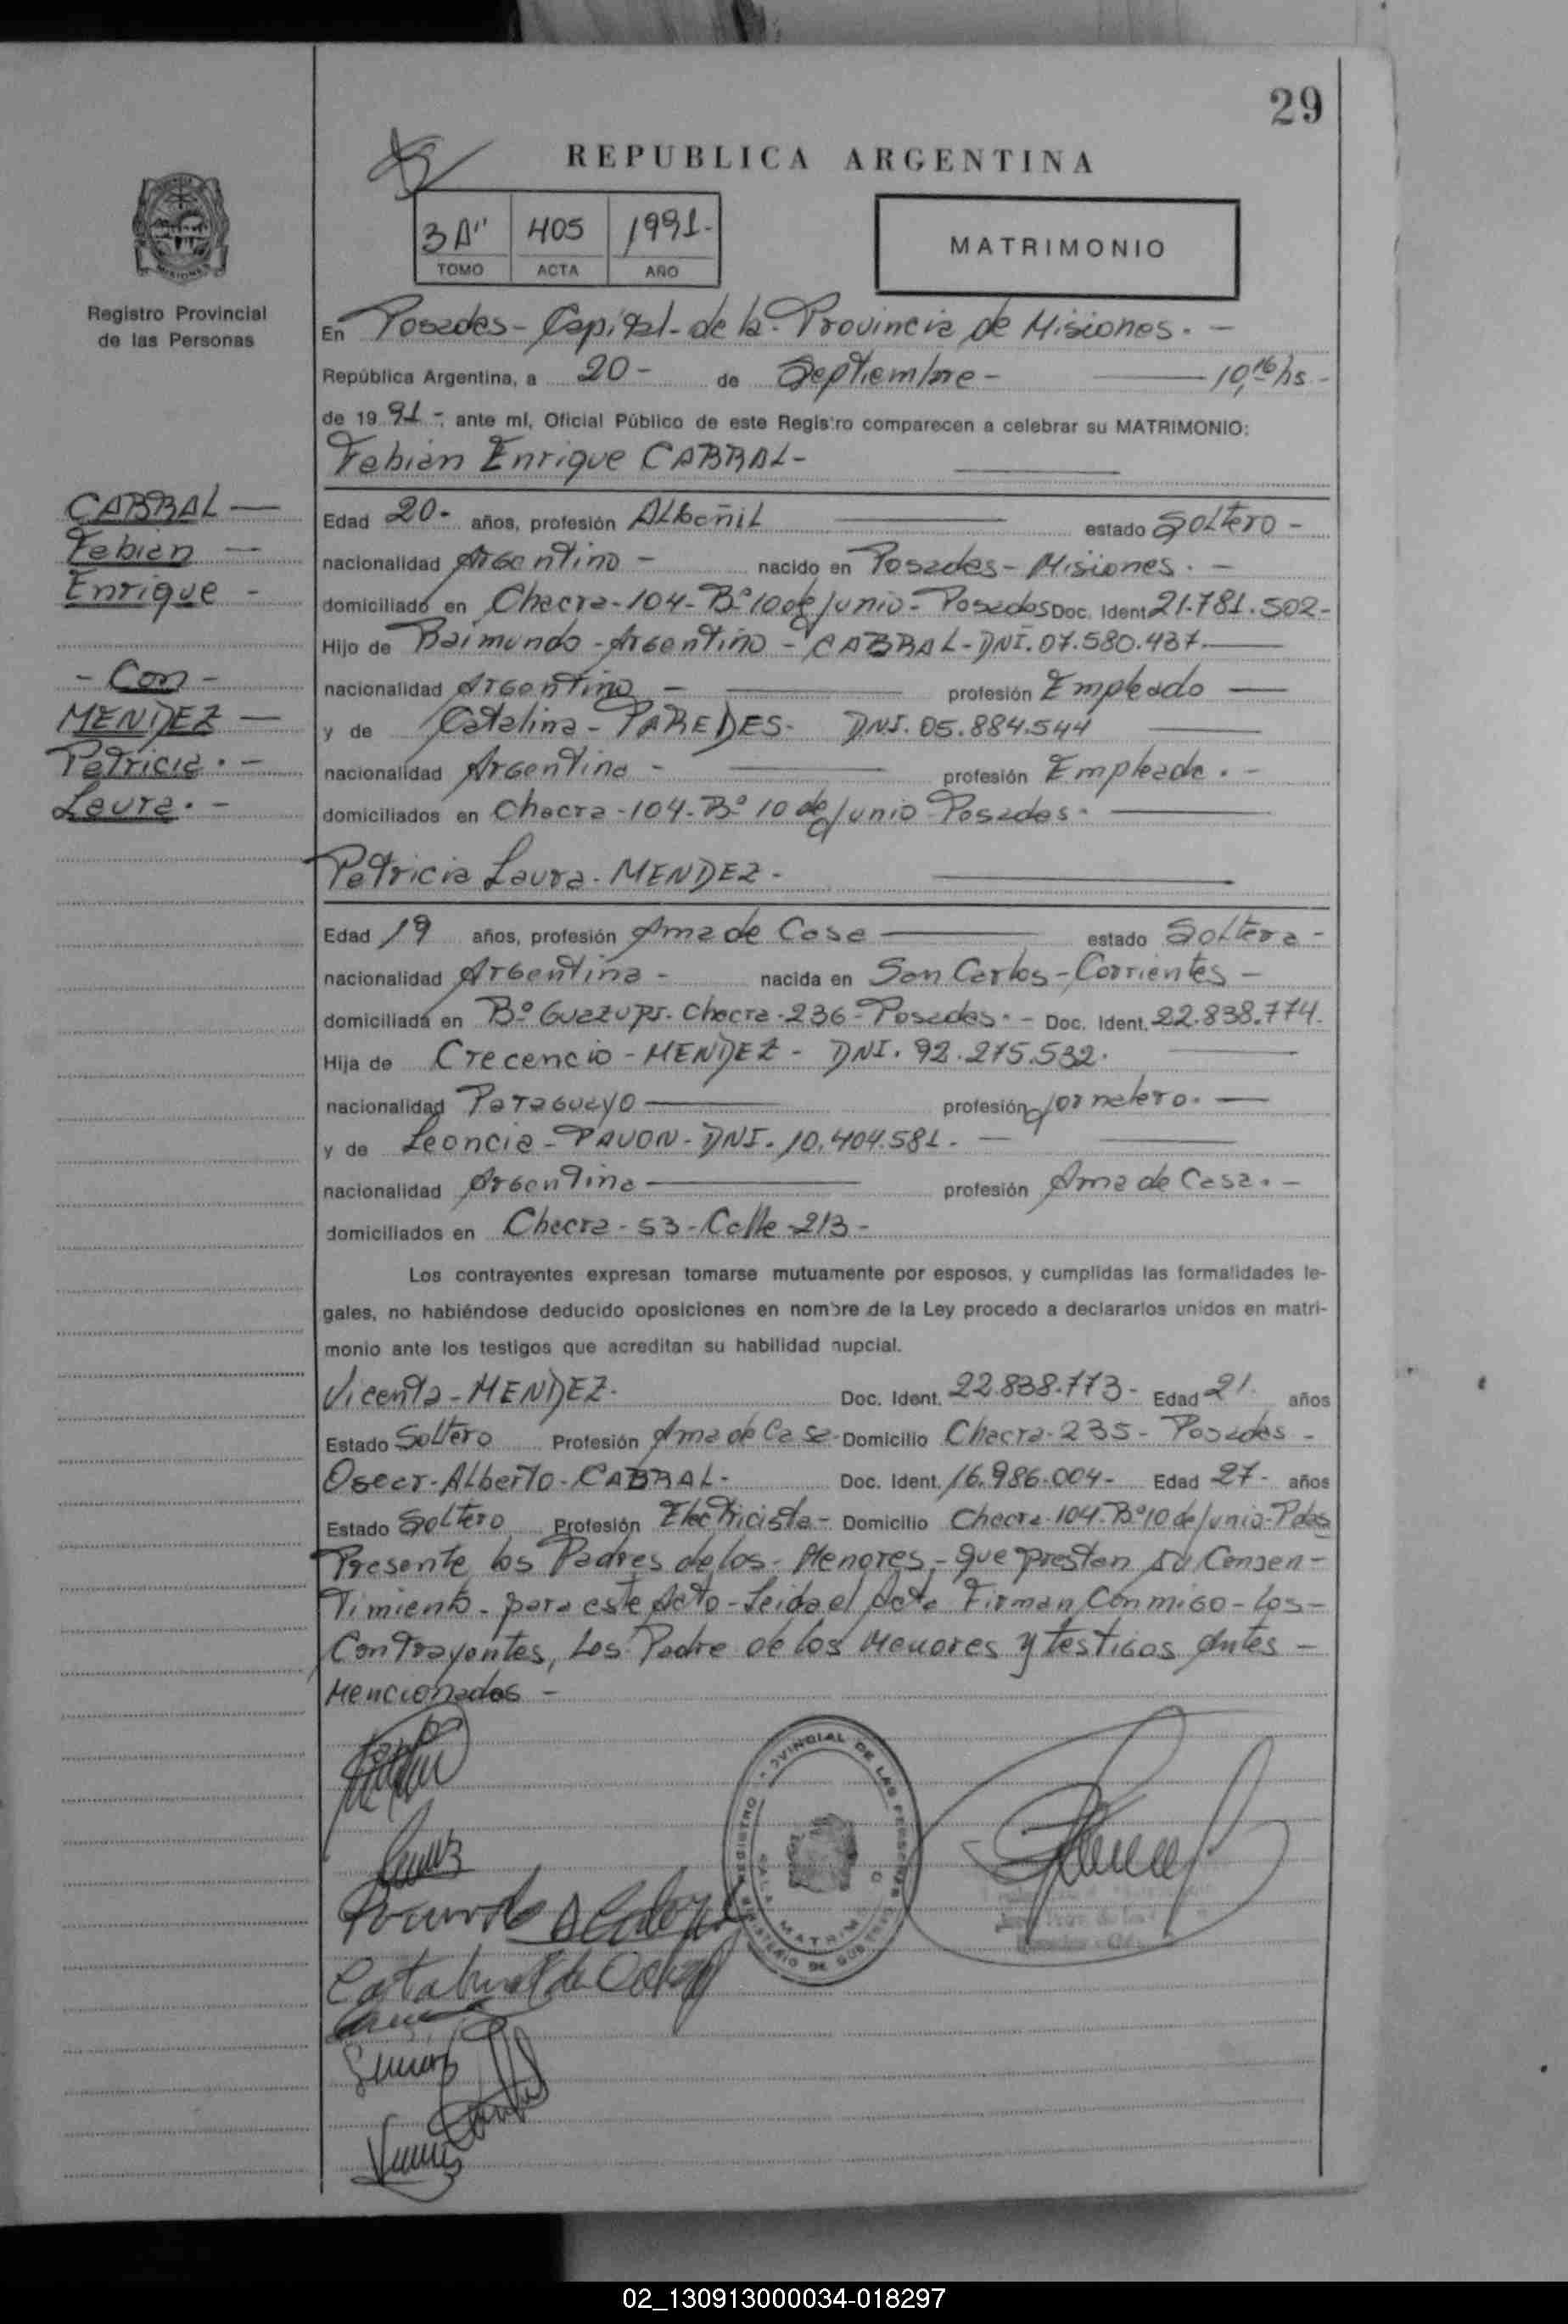 29
REPUBLICA ARGENTINA
3 A" 405 1991.-
TOMO ACTA AÑO
MATRIMONIO
Registro Provincial
de las Personas
En Posadas - Capital - de la Provincia de Misiones. -
República Argentina, a 20 - de Septiembre - 10,16 hs -
de 19 91 -, ante mí, Oficial Público de este Registro comparecen a celebrar su MATRIMONIO:
Fabian Enrique CABRAL -
CABRAL -
Fabian -
Enrique -
- Con -
MENDEZ -
Patricia. -
Laura. -
Edad 20 - años, profesión Albañil estado Soltero -
nacionalidad Argentino - nacido en Posadas - Misiones. -
domiciliado en Chacra - 104 - Bº 10 de Junio - Posadas Doc. Ident. 21.781.502 -
Hijo de Raimundo - Argentino - CABRAL - DNI. 07.580.437.
nacionalidad Argentino - profesión Empleado
y de Catalina - PAREDES - DNI. 05.884.544
nacionalidad Argentina - profesión Empleada. -
domiciliados en Chacra - 104 - Bº 10 de Junio Posadas -
Patricia Laura - MENDEZ -
Edad 19 años, profesión Ama de Casa estado Soltera -
nacionalidad Argentina - nacida en San Carlos - Corrientes -
domiciliada en Bº Guazupi - Chacra - 236 - Posadas. - Doc. Ident. 22.838.774.
Hija de Crecencio - MENDEZ - DNI. 92.275.532.
nacionalidad Paraguayo profesión Jornalero. -
y de Leoncia - PAVON - DNI - 10.404.581. -
nacionalidad Argentina profesión Ama de Casa. -
domiciliados en Chacra - 53 - Calle - 213 -
Los contrayentes expresan tomarse mutuamente por esposos, y cumplidas las formalidades le-
gales, no habiéndose deducido oposiciones en nombre de la Ley procedo a declararlos unidos en matri-
monio ante los testigos que acreditan su habilidad nupcial.
Vicenta - MENDEZ - Doc. Ident. 22.838.773 - Edad 21 - años
Estado Soltero Profesión Ama de Casa - Domicilio Chacra - 235 - Posadas -
Oscar - Alberto - CABRAL - Doc. Ident. 16.986.004 - Edad 27 - años
Estado Soltero Profesión Electricista - Domicilio Chacra - 104 - Bº 10 de Junio - Pdas
Presente los Padres de los - Menores - que prestan su Consen -
timiento - para este Acto - Leida el Acta Firman Conmigo - Los -
Contrayentes, Los Padre de los Menores y testigos Antes -
Mencionados -
REGISTRO PROVINCIAL DE LAS PERSONAS
MINISTERIO DE GOBIERNO
02_130913000034-018297